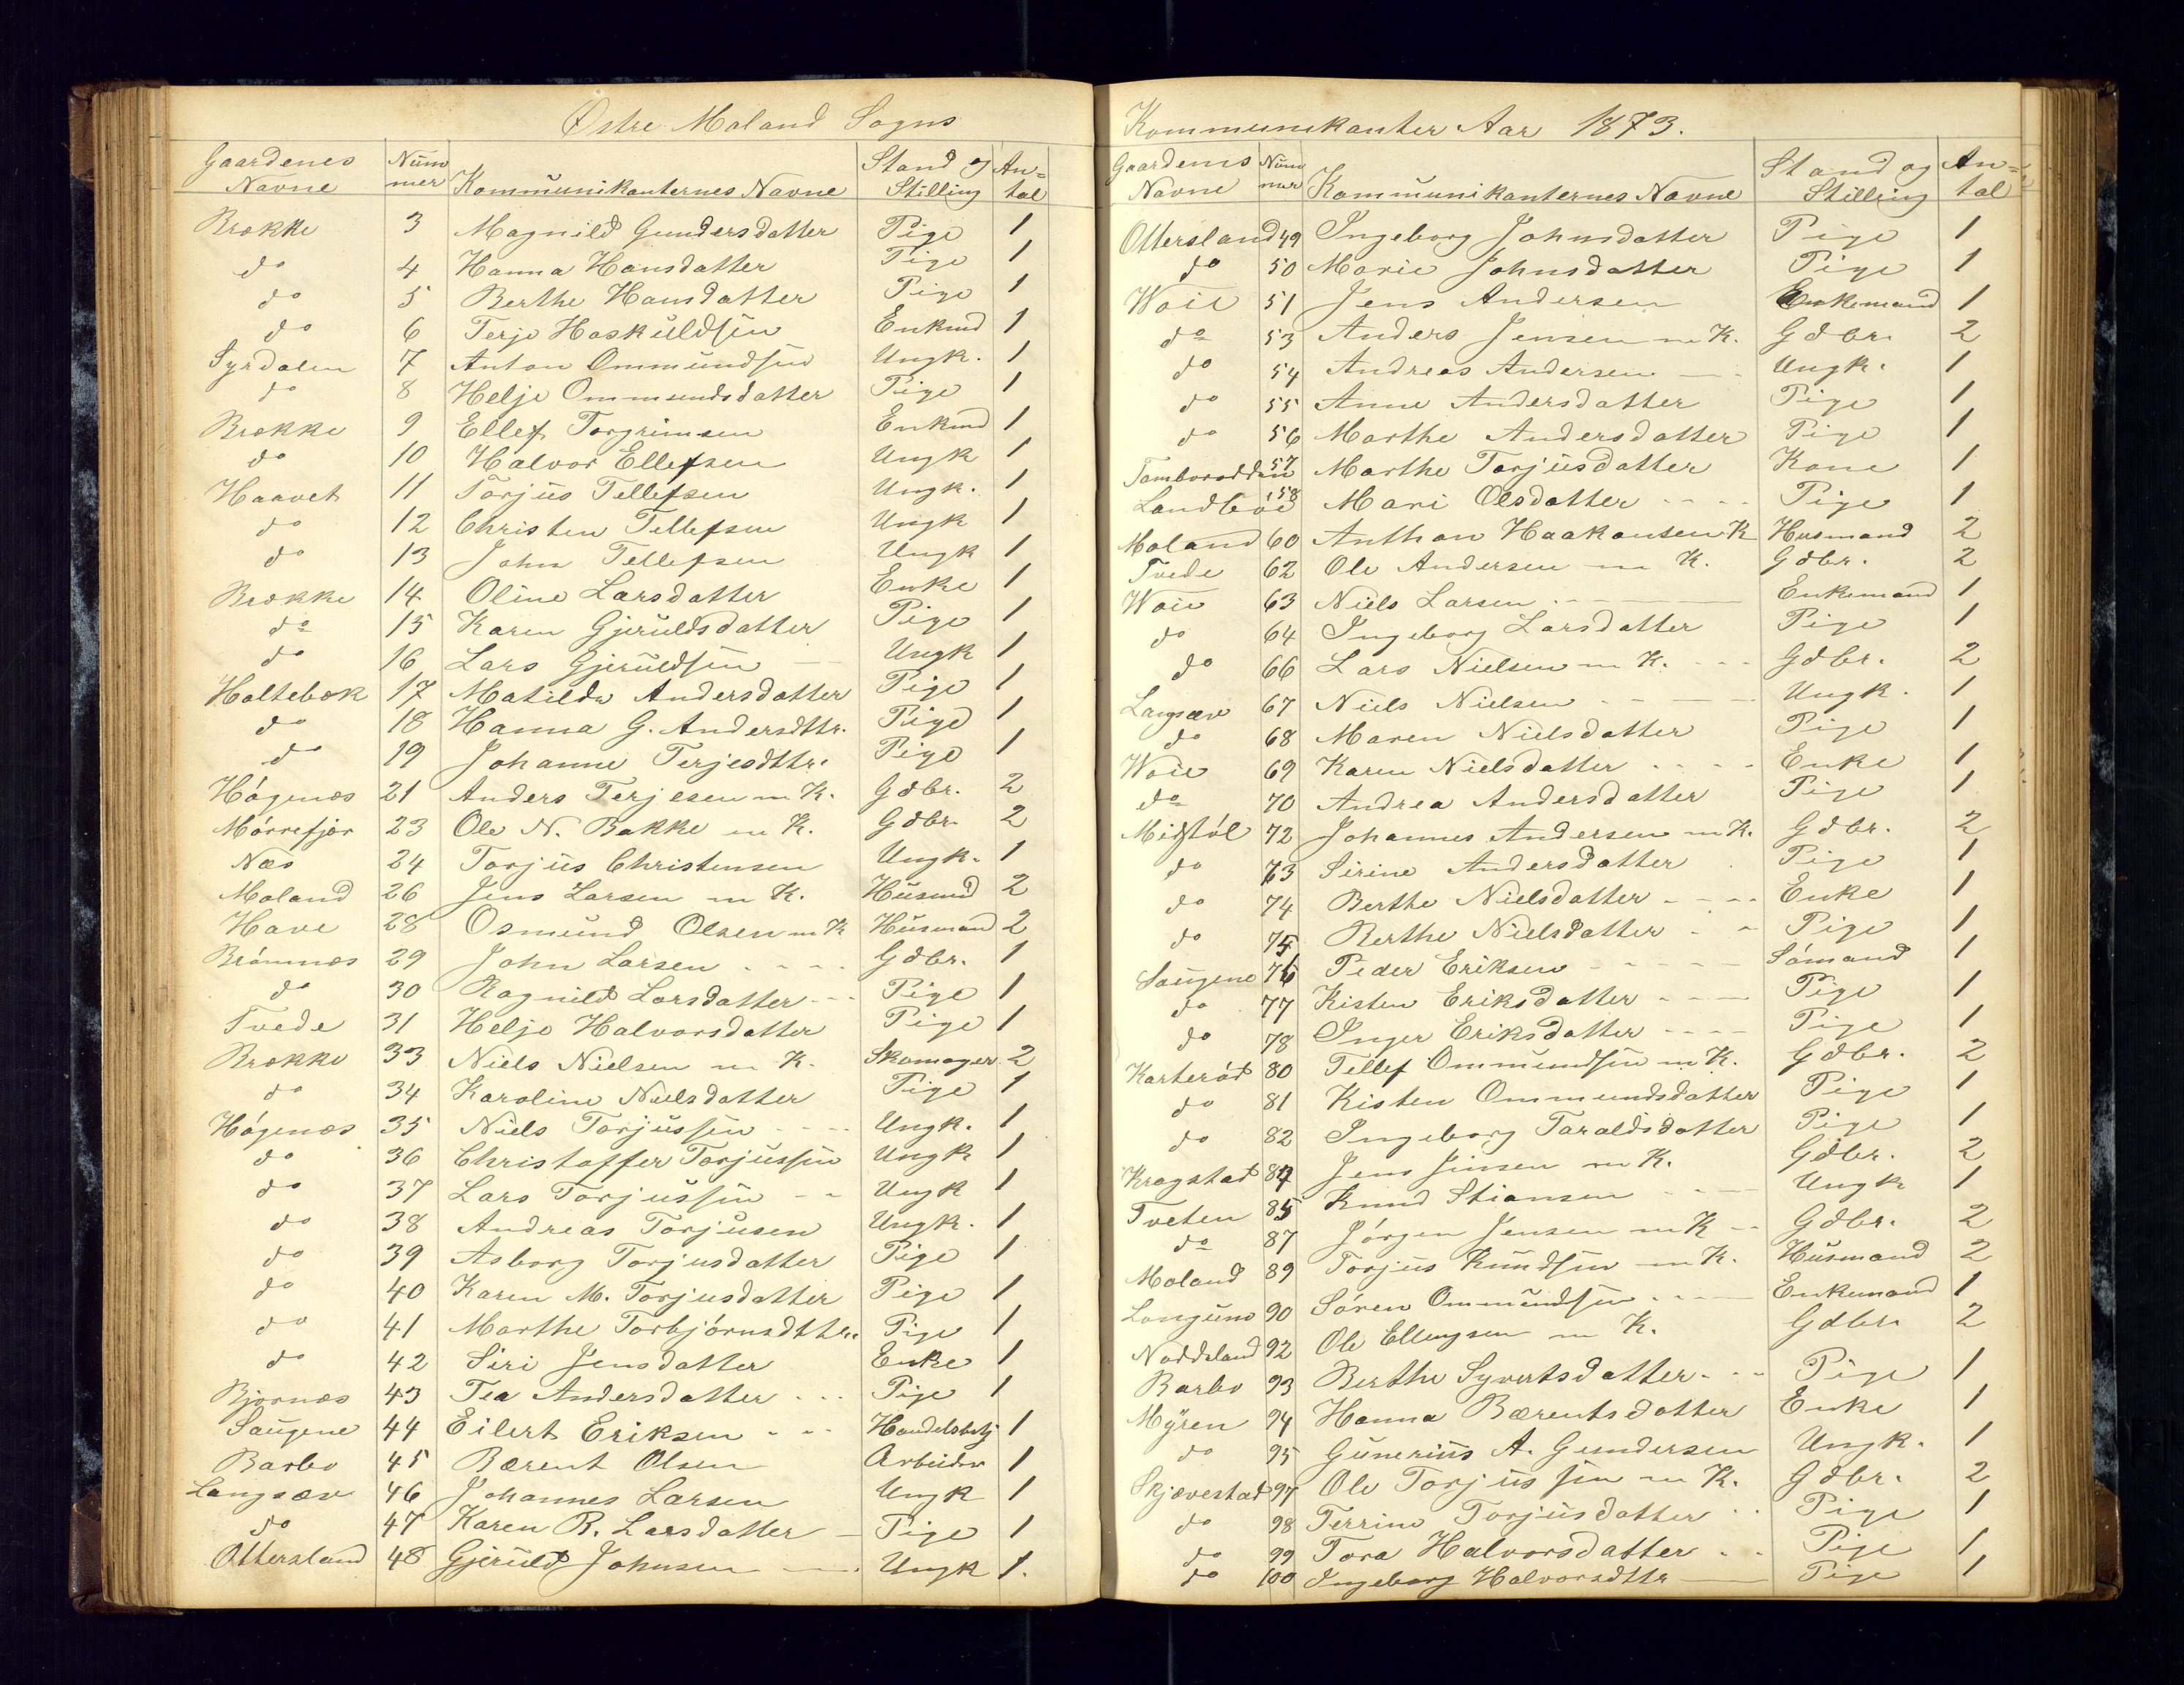 Østre Moland Sogns
Gaardenes Navne Nummer Kommunikanternes Navne Stand og Stilling An=tal
Brække 3 Magnild Gundersdatter Pige 1
do 4 Hanna Hansdatter Pige 1
do 5 Berthe Hansdatter Pige 1
do 6 Terje Haskuldsen Enkmd 1
Syrdalen 7 Anton Ommundsen Ungk. 1
do 8 Helje Ommundsdatter Pige 1
Brække 9 Ellef Torgrimsen Enkmd 1
do 10 Halvor Ellefsen Ungk 1
Haavet 11 Torjus Tellefsen Ungk. 1
do 12 Christen Tellefsen Ungk 1
do 13 John Tellefsen Ungk 1
Brække 14 Oline Larsdatter Enke 1
do 15 Karen Gjeruldsdatter Pige 1
do 16 Lars Gjeruldsen Ungk 1
Holtebæk 17 Matilda Andersdatter Pige 1
do 18 Hanna G. Andersdttr. Pige 1
do 19 Johanne Terjesdttr. Pige 1
Høgenæs 21 Anders Terjesen m K. Gdbr. 2
Mørrefjær 23 Ole N. Bakke m K. Gdbr. 2
Næs 24 Torjus Christensen Ungk. 1
Moland 26 Jens Larsen m K. Husmd 2
Have 28 Osmund Olsen m K Husmand 2
Brømnæs 29 John Larsen Gdbr. 1
do 30 Ragnild Larsdatter Pige 1
Tvede 31 Helje Halvorsdatter Pige 1
Brække 33 Niels Nielsen m K. Skomager 2
do 34 Karoline Nielsdatter Pige 1
Høgenæs 35 Niels Torjussen Ungk. 1
do 36 Christoffer Torjussen Ungk 1
do 37 Lars Torjussen Ungk 1
do 38 Andreas Torjusen Ungk. 1
do 39 Asborg Torjusdatter Pige 1
do 40 Karen M. Torjusdatter Pige 1
do 41 Marthe Torbjørnsdttr. Pige 1
do 42 Siri Jensdatter Enke 1
Bjørnæs 43 Tea Andersdatter Pige 1
Saugene 44 Eilert Eriksen Handelsbetj 1
Barbo 45 Bærent Olsen Arbeider 1
Langsæv 46 Johannes Larsen Ungk 1
do 47 Karen B. Larsdatter Pige 1
Ottersland 48 Gjeruld Johnsen Ungk 1.
Kommunikanter Aar 1873.
Gaardenes Navne Nummer Kommunikanternes Navne Stand og Stilling An=tal
Ottersland 49 Ingeborg Johnsdatter Pige 1
do 50 Marie Johnsdatter Pige 1
Woie 51 Jens Andersen Enkemand 1
do 53 Anders Jensen m K. Gdbr. 2
do 54 Andreas Andersen Ungk. 1
do 55 Anne Andersdatter Pige 1
do 56 Marthe Andersdatter Pige 1
Tamborodden 57 Marthe Torjusdatter Kone 1
Landbøe 58 Mari Olsdatter Pige 1
Moland 60 Anthon Haakonsen K Husmand 2
Tvede 62 Ole Andersen m K. Gdbr. 2
Woie 63 Niels Larsen Enkemand 1
do 64 Ingeborg Larsdatter Pige 1
do 66 Lars Nielsen m K. Gdbr. 2
Langsæv 67 Niels Nielsen Ungk. 1
do 68 Maren Nielsdatter Pige 1
Woie 69 Karen Nielsdatter Enke 1
do 70 Andrea Andersdatter Pige 1
Midtøl 72 Johannes Andersen m K. Gdbr. 2
do 73 Sirine Andersdatter Pige 1
do 74 Berthe Nielsdatter Enke 1
do 75 Berthe Nielsdatter Pige 1
Saugene 76 Peder Eriksen Sømand 1
do 77 Kisten Eriksdatter Pige 1
do 78 Inger Eriksdatter Pige 1
Karterød 80 Tellef Ommundsen m K. Gdbr. 2
do 81 Kisten Ommundsdatter Pige 1
do 82 Ingeborg Taraldsdatter Pige 1
Kragstad 84 Jens Jensen m K. Gdbr. 2
Tveten 85 Knud Stiansen Ungk 1
do 87 Jørgen Jensen m K Gdbr. 2
Moland 89 Torjus Knudsen m K. Husmand 2
Longum 90 Søren Ommundsen Enkemand 1
Noddeland 92 Ole Ellengsen m K. Gdbr. 2
Barbo 93 Berthe Syvertsdatter Pige 1
Myren 94 Hanna Bærentsdatter Enke 1
do 95 Gunerius A. Gundersen Ungk. 1
Skjævestad 97 Ole Torjussen m K. Gdbr. 2
do 98 Terrine Torjusdatter Pige 1
do 99 Tora Halvorsdatter Pige 1
do 100 Ingeborg Halvorsdttr Pige 1